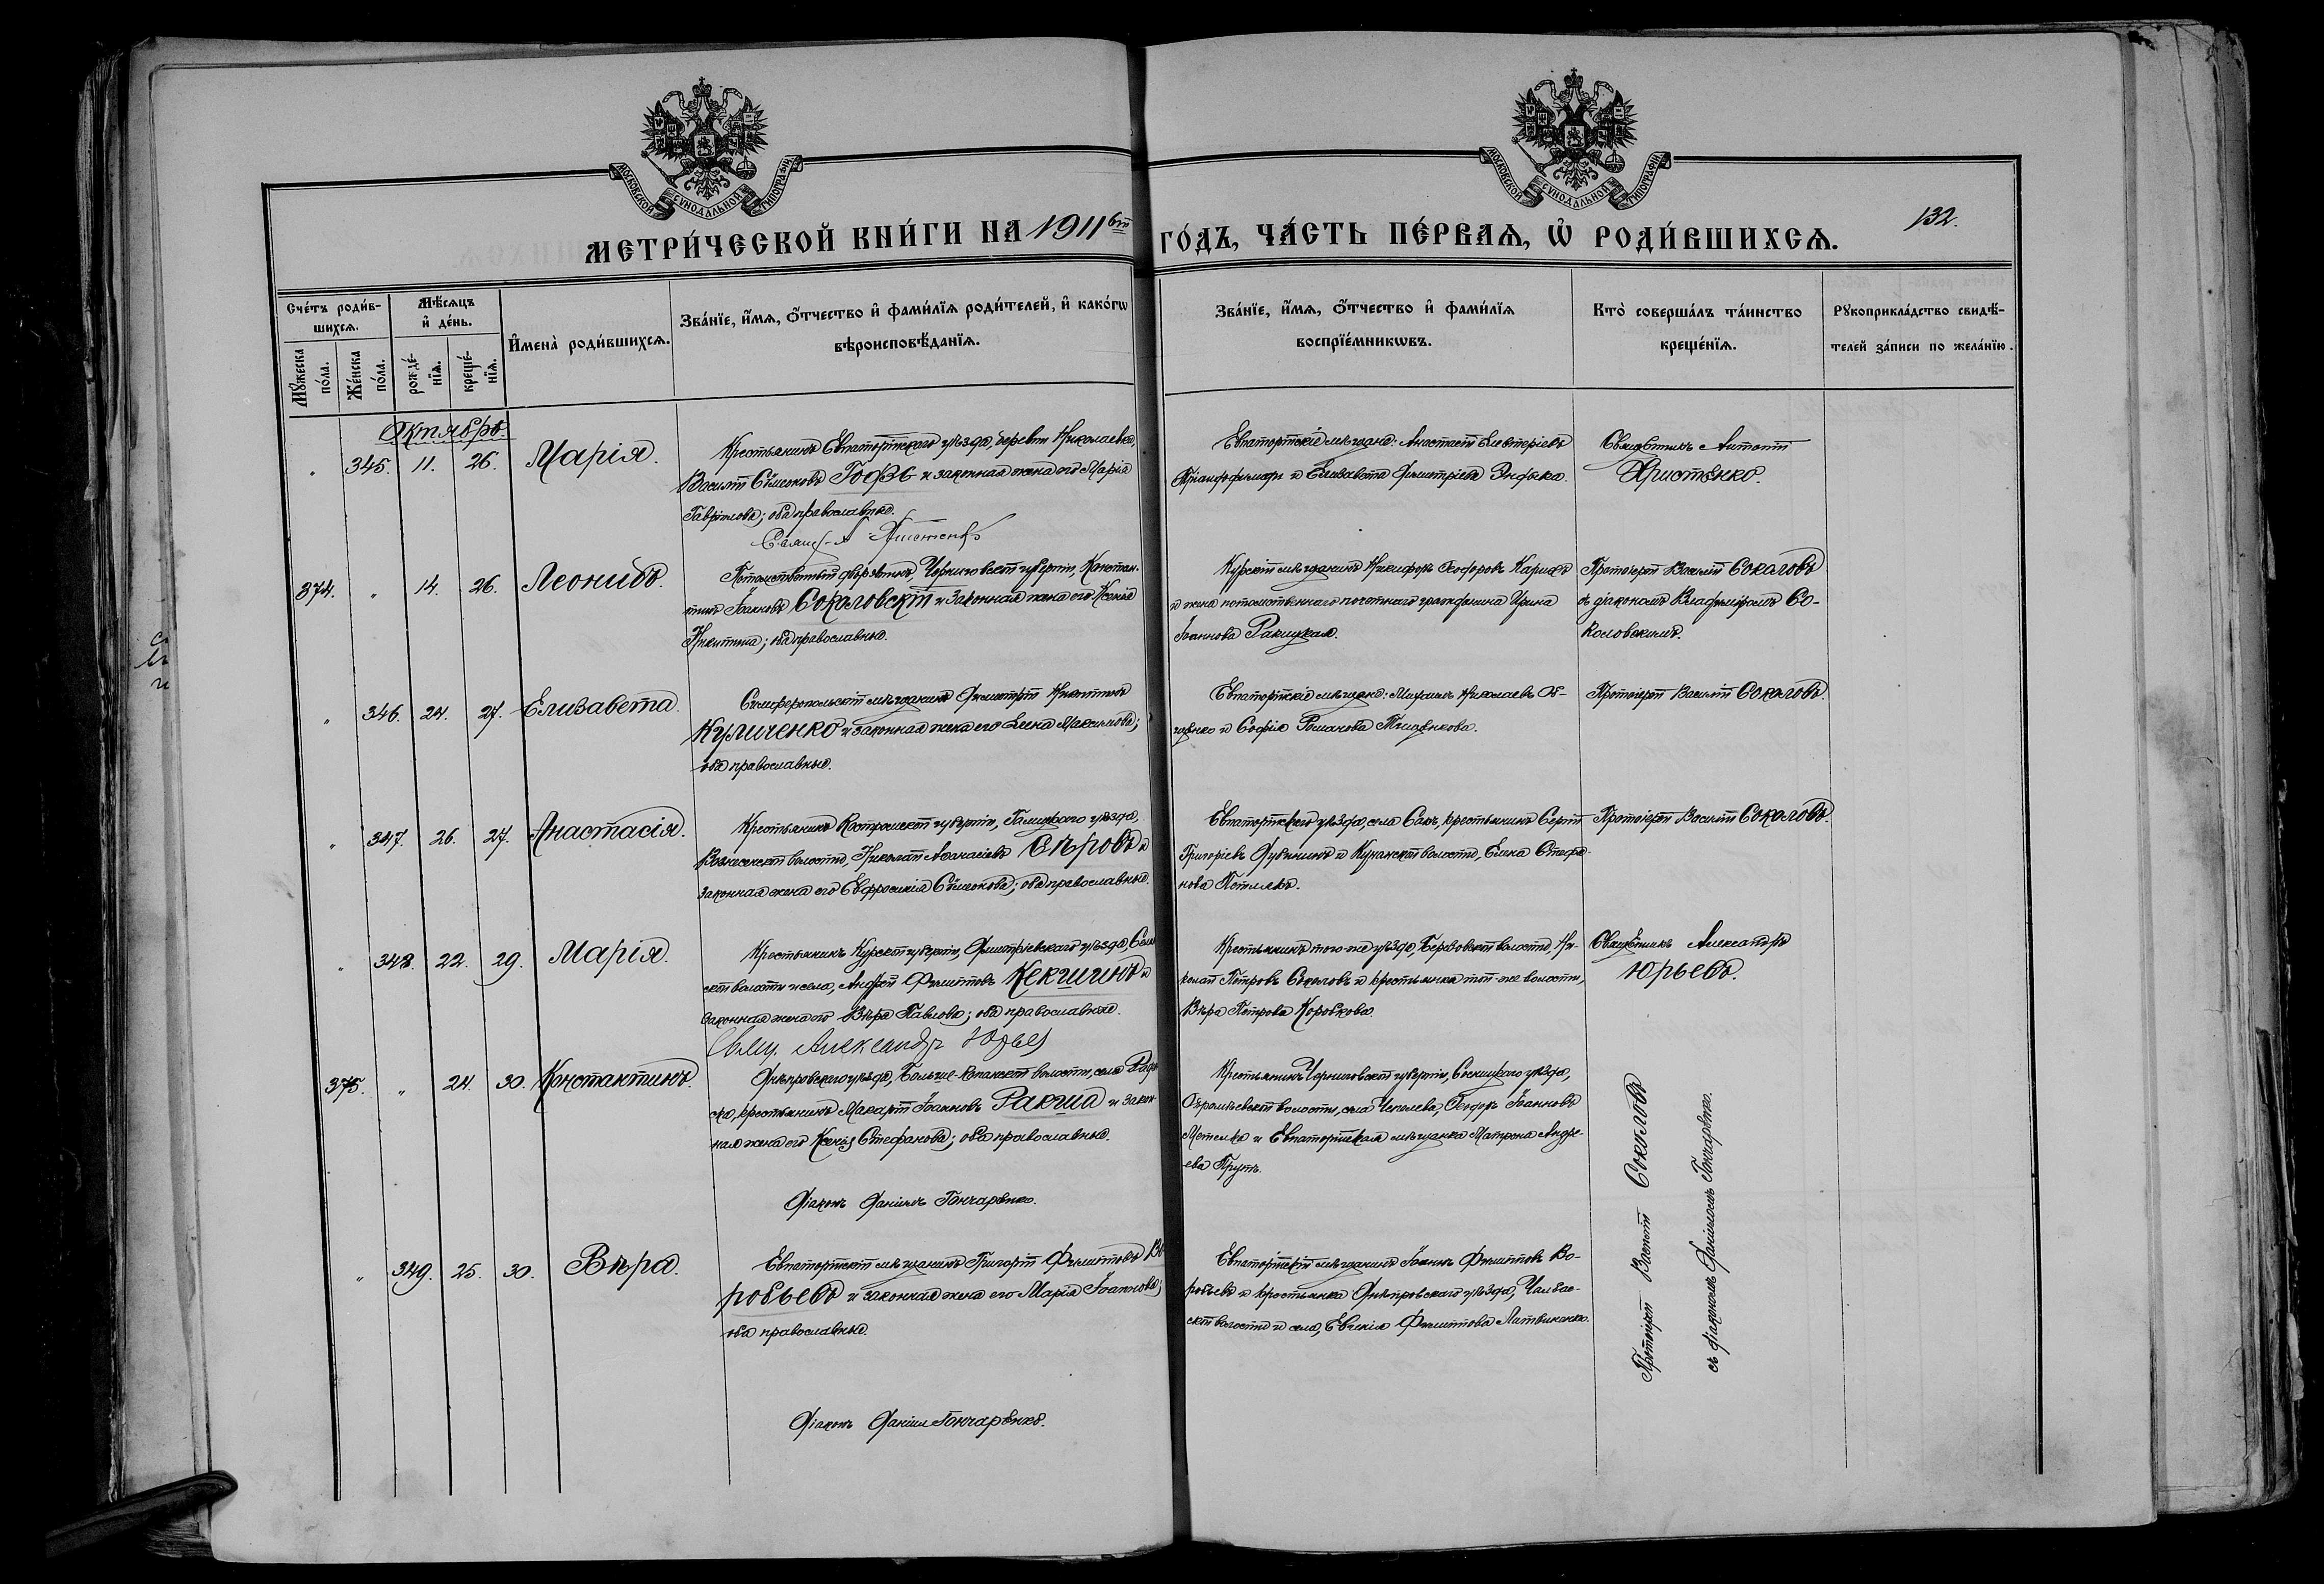 МОСКОВСКОЙ СУНОДАЛЬНОЙ ТИПОГРАФІИ
МОСКОВСКОЙ СУНОДАЛЬНОЙ ТИПОГРАФІИ
132.
МЕТРИ́ЧЕСКОЙ КНИ́ГИ НА 1911 ГО́ДЪ, ЧА́СТЬ ПЕ́РВАѦ, Ѡ҆ РОДИ́ВШИХСѦ.
Сче́тъ роди́в-
шихсѧ.
Мꙋ́жеска по́ла.
Же́нска по́ла.
Мѣ́сѧцъ
и҆ де́нь.
рожде́-
нїѧ.
креще́-
нїѧ.
И҆мена̀ роди́вшихсѧ.
Зва́нїе, и҆́мѧ, ѻ҆́тчество и҆ фами́лїѧ роди́телей, и҆ како́гѡ
вѣроисповѣ́данїѧ.
Зва́нїе, и҆́мѧ, ѻ҆́тчество и҆ фами́лїѧ
воспрїе́мникѡвъ.
Кто̀ соверша́лъ та́инство
креще́нїѧ.
Рꙋкоприкла́дство свидѣ́-
телей за́писи по жела́нїю.
Октябрь.
" 345. 11. 26. Марія.
Крестьянинъ Евпаторійскаго уѣзда, деревни Николаевки,
Василій Симеоновъ и законная жена его Марія
Гавріилова; оба православные.
Евпаторійскіе мѣщане: Анастасій Елевтеріевъ
и Елизавета Димитріева
Священникъ Антоній
Христенко.
374. " 14. 26. Леонидъ.
Потомственный дворянинъ, Черниговской губерніи, Констан-
тинъ Іоанновъ Соколовскій и законная жена его Ксенія
Никитина; оба православные.
Курскій мѣщанинъ Никифоръ Ѳеодоровъ
и жена потомственнаго почетнаго гражданина Ирина
Іоаннова Ракицкая.
Протоіерей Василій Соколовъ
съ діакономъ Владиміромъ Со-
коловскимъ.
" 346. 24. 27. Елизавета.
Симферопольскій мѣщанинъ Димитрій Никитинъ
Куличенко и законная жена его Елена Максимова;
оба православные.
Евпаторійскіе мѣщане: Михаилъ Николаевъ Об-
щенко и Софія Романова Тищенкова.
Протоіерей Василій Соколовъ.
" 347. 26. 27. Анастасія.
Крестьянинъ Костромской губерніи, Галицкаго уѣзда,
Вознесенской волости, Николай Аѳанасіевъ Сѣровъ и
законная жена его Евфросинія Симеонова; оба православные.
Евпаторійскаго уѣзда, села Сакъ, крестьянинъ Сергій
Григоріевъ и волости, Елена Стефа-
нова
Протоіерей Василій Соколовъ.
" 348. 22. 29. Марія.
Крестьянинъ Курской губерніи, Дмитріевскаго уѣзда,
ской волости и села, Андрей Филипповъ Кекшинъ и
законная жена его Вѣра Павлова; оба православные.
Свящ. Александръ Юрьев
Крестьянинъ того-же уѣзда, Березовской волости, Ни-
колай Петровъ Соколовъ и крестьянка той-же волости,
Вѣра Петрова Коробкова.
Священникъ Александръ
Юрьевъ.
375. " 24. 30. Константинъ.
Днѣпровскаго уѣзда, Больше-Копанской волости, села
крестьянинъ Макарій Іоанновъ Ракша и закон-
ная жена его Ксенія Стефанова; оба православные.
Діаконъ Даніилъ Гончаренко.
Крестьянинъ Черниговской губерніи, Сосницкаго уѣзда,
волости, села Чепелева, Ѳеодоръ Іоанновъ
и Евпаторійская мѣщанка Матрона Андре-
ева Прутъ.
Протоіерей Василій Соколовъ
съ діакономъ Даніиломъ Гончаренко.
" 349. 25. 30. Вѣра.
Евпаторійскій мѣщанинъ Григорій Филипповъ Во-
робьевъ и законная жена его Марія Іоаннова;
оба православные.
Діаконъ Даніилъ Гончаренко.
Евпаторійскій мѣщанинъ Іоаннъ Филипповъ Во-
робьевъ и крестьянка Днѣпровскаго уѣзда, Чалбас-
ской волости и села, Евгенія Филиппова